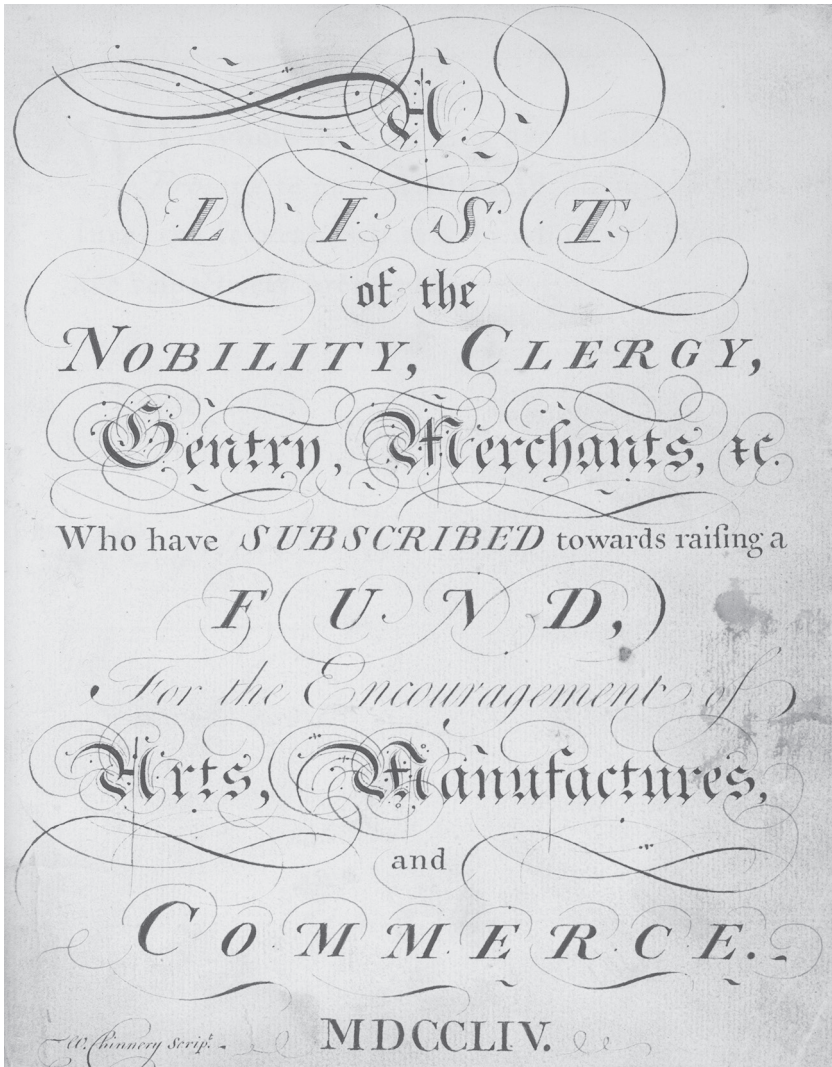 A
LIST
of the
NOBILITY, CLERGY,
Gentry, Merchants, &c.
Who have SUBSCRIBED towards raiſing a
FUND,
For the Encouragement of
Arts, Manufactures,
and
COMMERCE.
MDCCLIV.
W. Chinnery Scrip.t